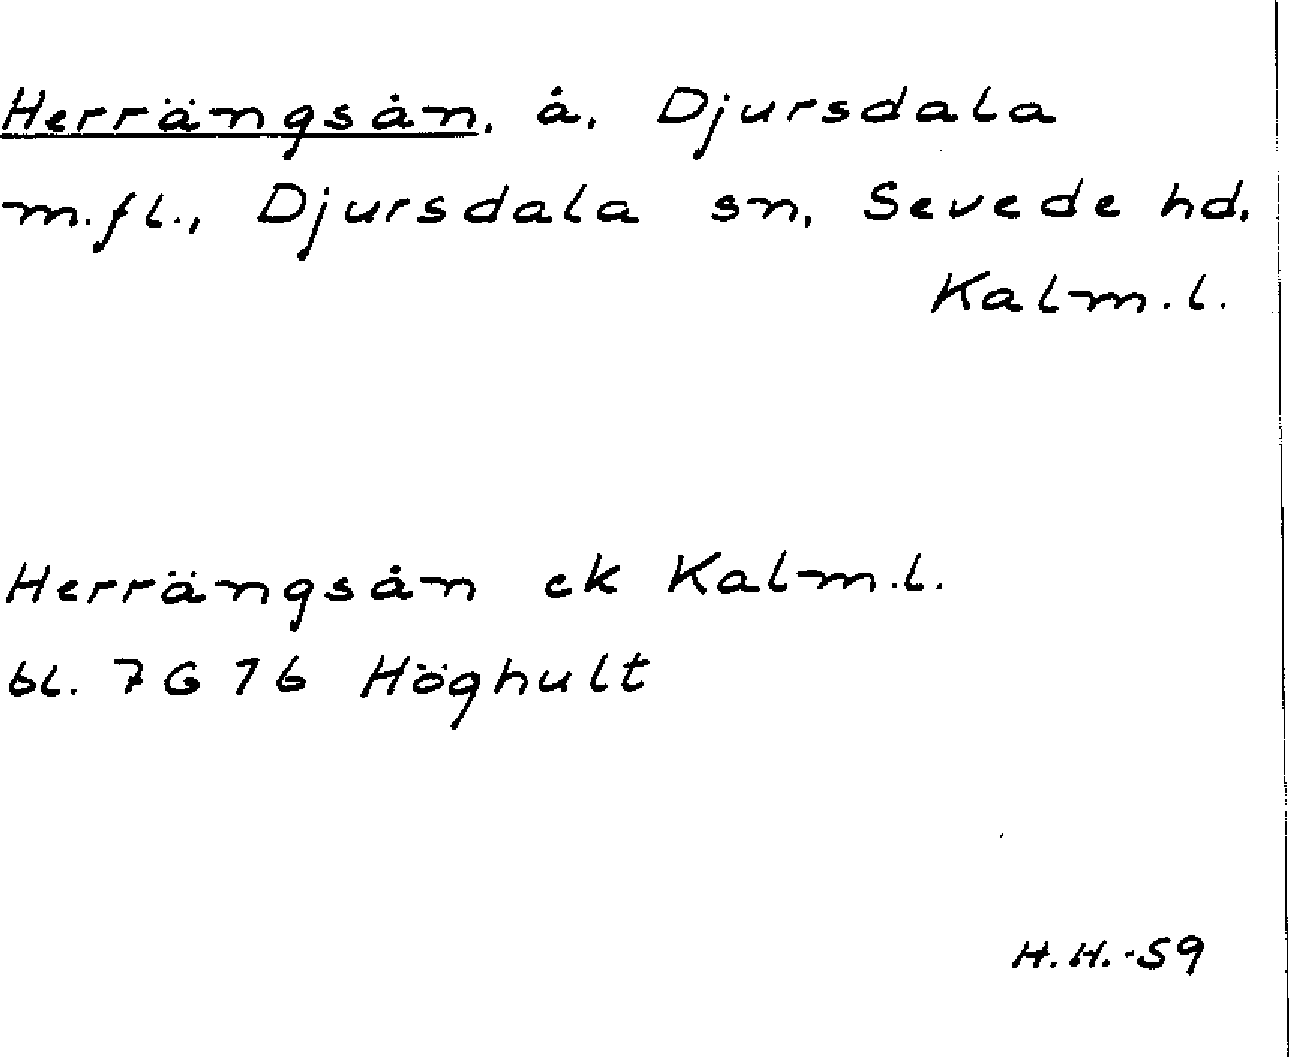 Herrängsån, å, Djursdala
m.fl., Djursdala sn, Sevede hd,
Kalm.l.
Herrängsån ek Kalm.l.
bl. 7 G 7 b Höghult
H.H.-59